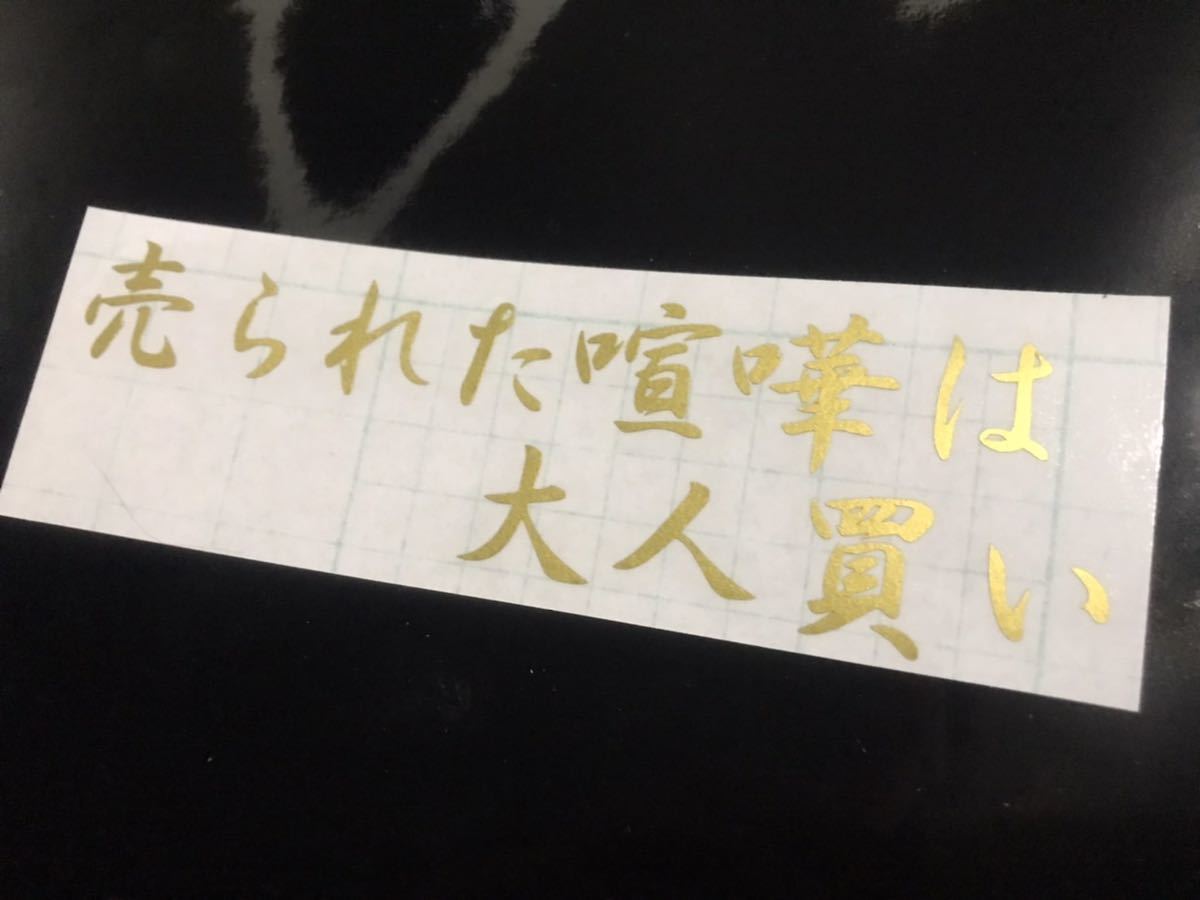 売られた喧嘩は
大人買い